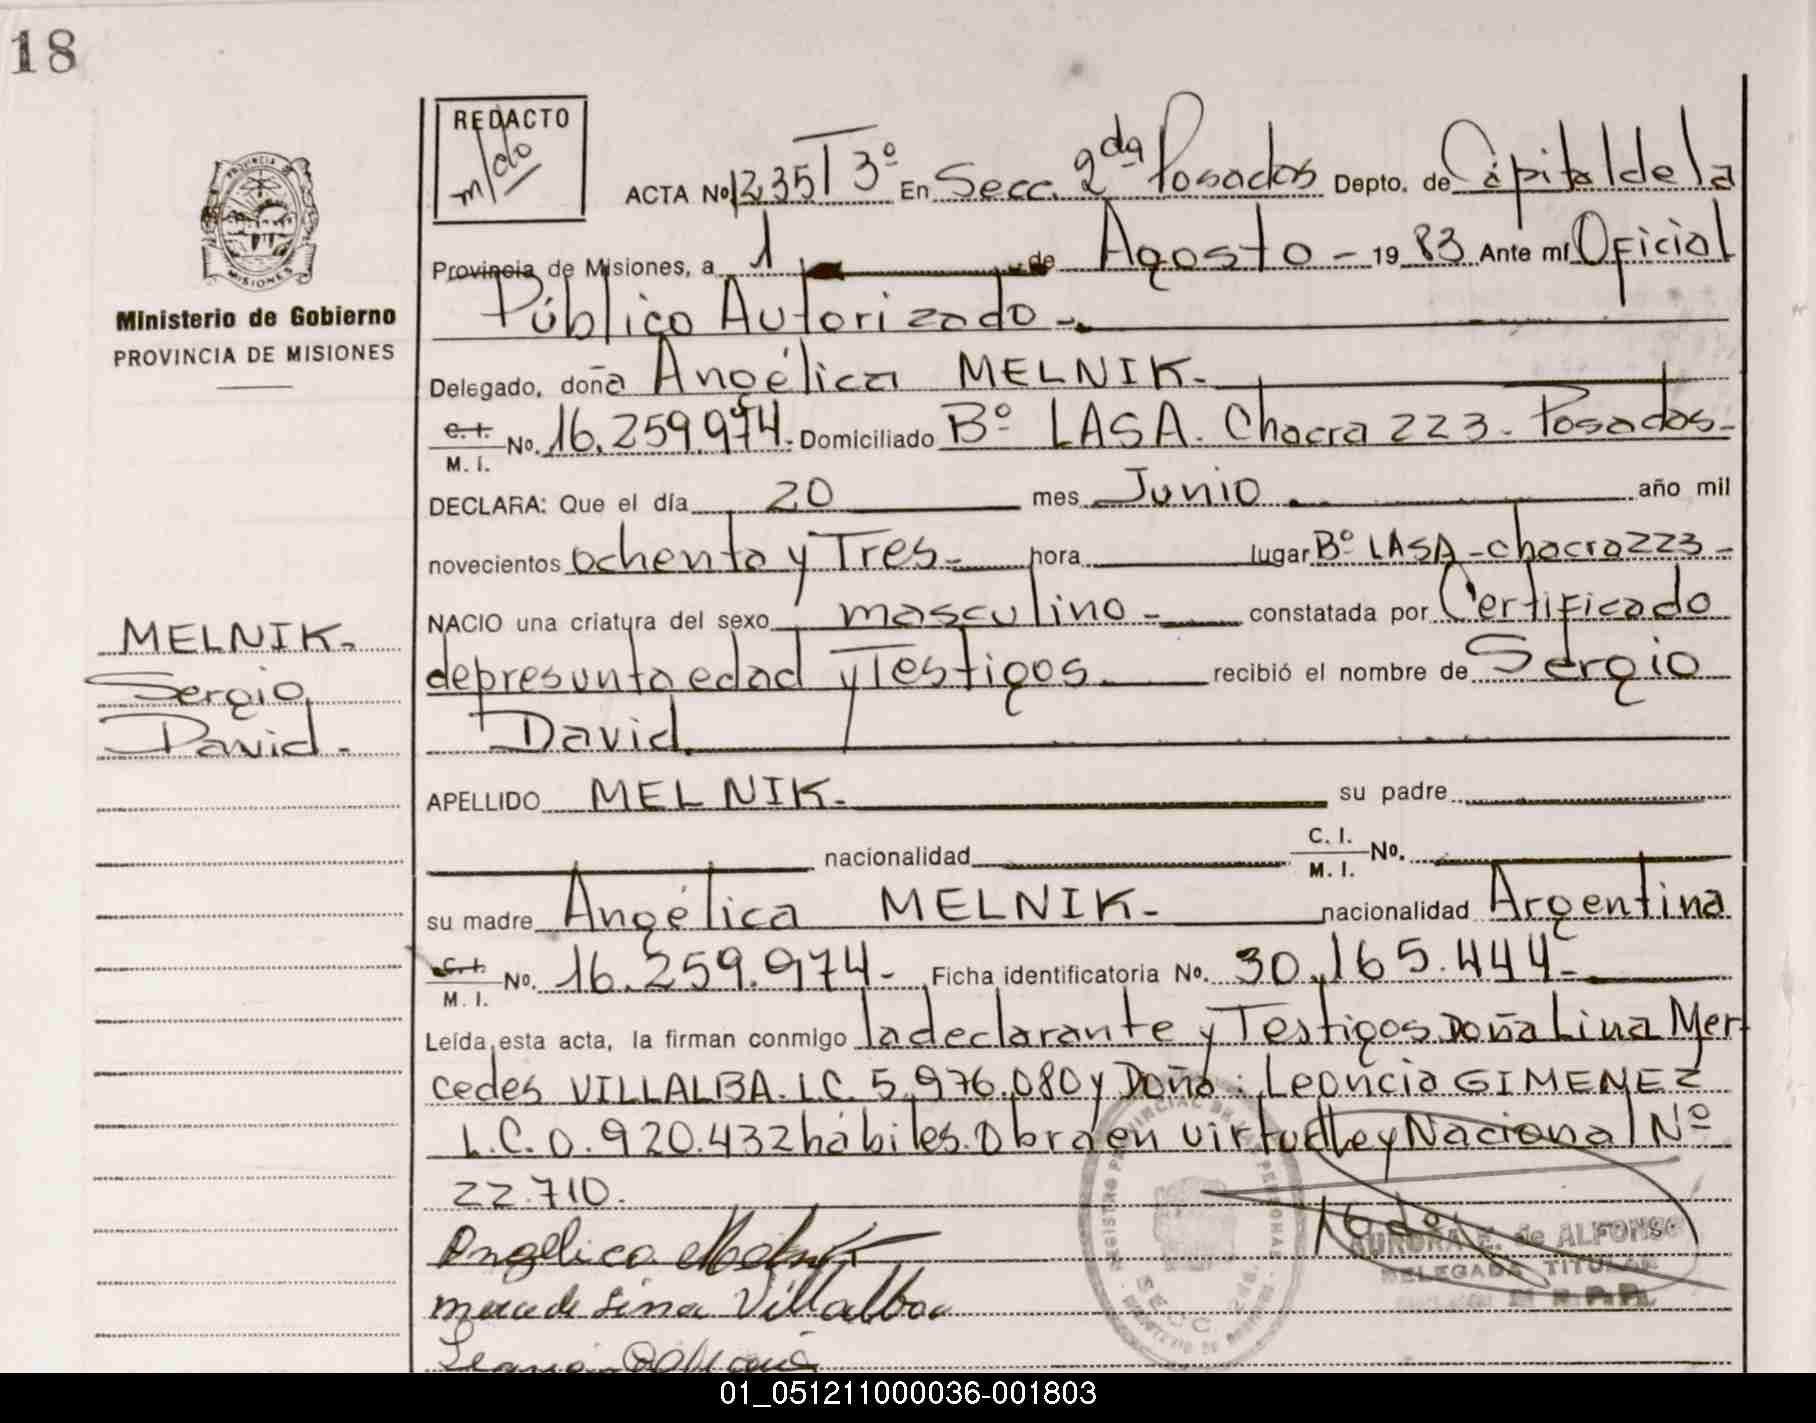 18
REDACTO
m/do
ACTA No. 1235 T 3º En Secc. 2da Posadas Depto. de Capital de la
Provincia de Misiones, a 1 de Agosto - 1983 Ante mí Oficial
Público Autorizado -
Ministerio de Gobierno
PROVINCIA DE MISIONES
Delegado, doña Angélica MELNIK.
C. I. M. I. No. 16.259.974. Domiciliado Bº LASA. Chacra 223. Posadas-
DECLARA: Que el día 20 mes Junio año mil
novecientos ochenta y Tres - hora lugar Bº LASA - chacra 223 -
NACIO una criatura del sexo masculino - constatada por Certificado
de presunta edad y Testigos recibió el nombre de Sergio
David.
MELNIK.
Sergio
David.
APELLIDO MELNIK. su padre
nacionalidad C. I. M. I. No.
su madre Angélica MELNIK- nacionalidad Argentina
C. I. M. I. No. 16.259.974- Ficha identificatoria No. 30.165.444-
Leída esta acta, la firman conmigo la declarante y Testigos Doña Lina Mer
cedes VILLALBA. L.C. 5.976.080 y Doña: Leoncia GIMENEZ
L.C. 0.920.432 hábiles. Obra en virtud Ley Nacional Nº
22.710.
Angelica Melnik
Villalba
AURORA E. de ALFONSO
DELEGADA TITULAR
01_051211000036-001803